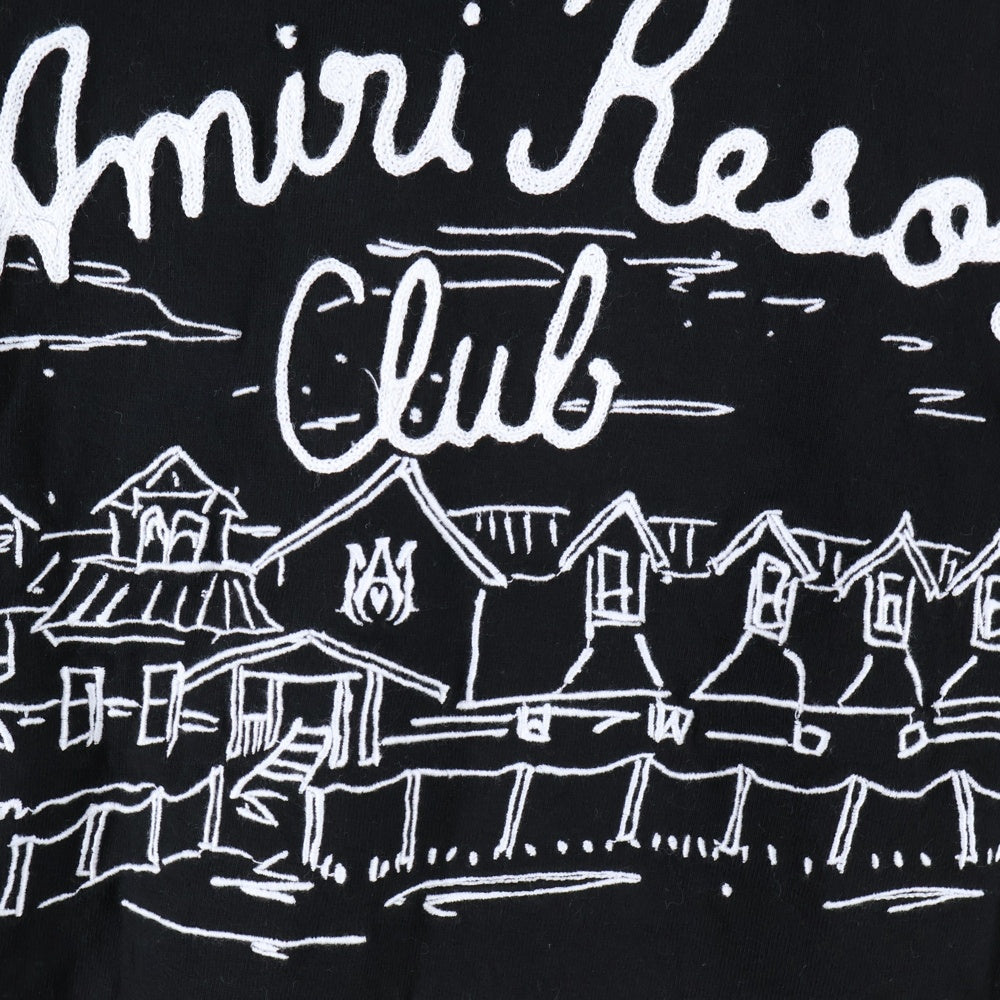 Amiri Reso
Club